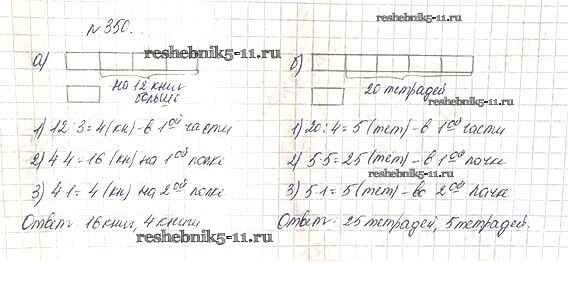 №350.
reshebnik5-11.ru
а)
на 12 книг
больше
1) 12:3=4(кн)-в 1ой части
2) 4·4=16 (кн) на 1ой полке
3) 4·1=4(кн) на 2ой полке
Ответ: 16 книг, 4 книги
reshebnik5-11.ru
reshebnik5-11.ru
б)
20 тетрадей
reshebnik5-11.ru
1) 20:4=5(тет)-в 1ой части
2) 5·5=25(тет)-в 1ой пачке
3) 5·1=5(тет)-во 2ой пачке
Ответ: 25 тетрадей, 5 тетрадей.